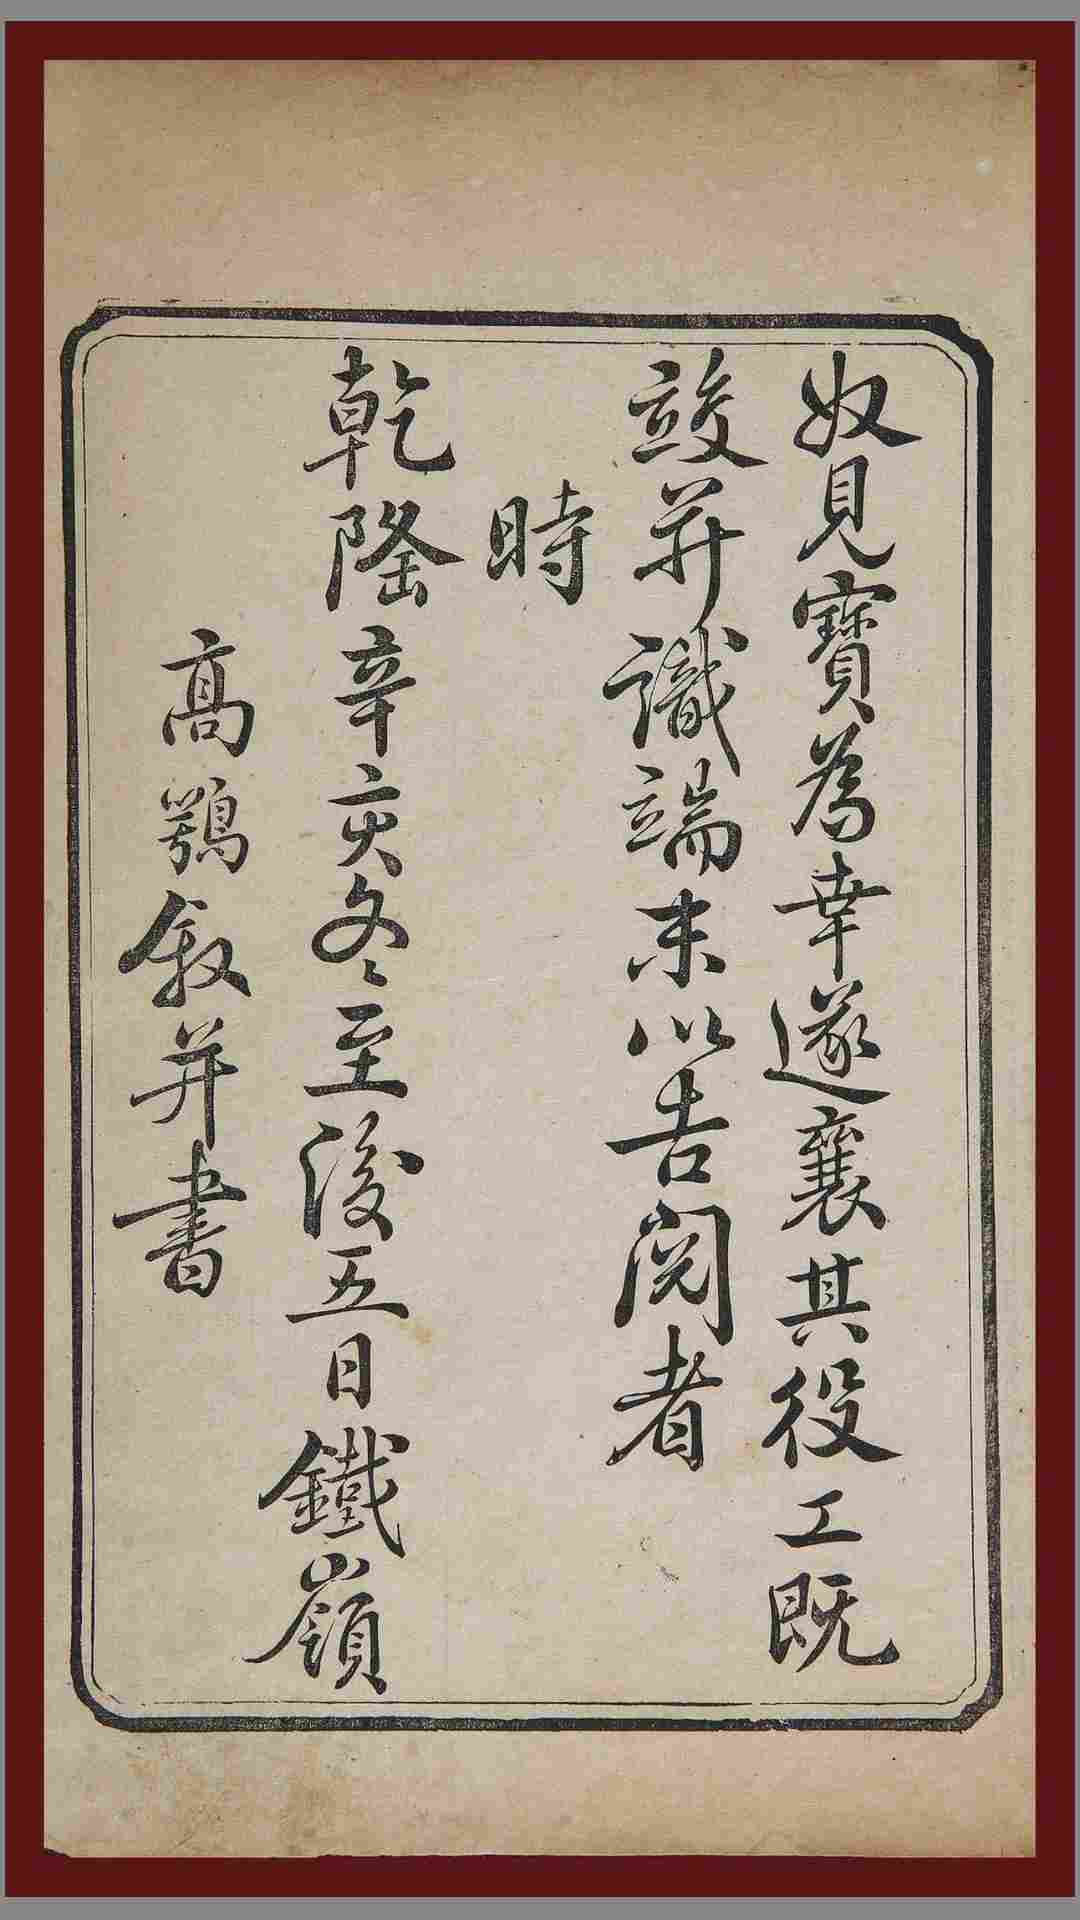 奴見寶爲幸遂襄其役工既
竣并識端末以告閱者
時
乾隆辛亥冬至後五日鐵嶺
高鶚叙并書